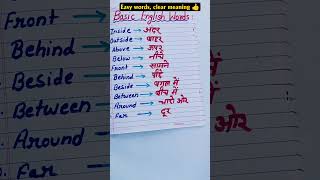 Easy words, clear meaning 👍
Basic English Words:
Inside → अंदर
Outside → बाहर
Above → ऊपर
Below → नीचे
Front → सामने
Behind → पीछे
Beside → बगल में
Between → बीच में
Around → चारो ओर
Far → दूर
Front
Behind
Beside
Between
Around
Far
ओर